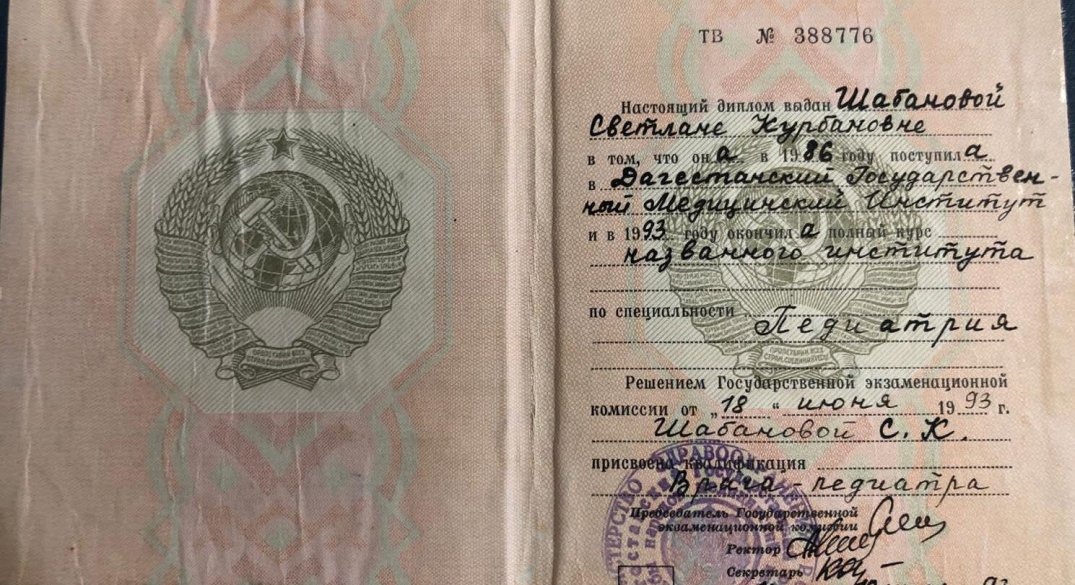 ТВ № 388776
Настоящий диплом выдан Шабановой
Светлане Курбановне
в том, что она в 1986 году поступила
в Дагестанский Государствен-
ный Медицинский Институт
и в 1993 году окончила полный курс
названного института
по специальности
Педиатрия
ПРОЛЕТАРИИ ВСЕХ
СТРАН, СОЕДИНЯЙТЕСЬ!
Решением Государственной экзаменационной
комиссии от „18" июня 1993 г.
Шабановой С. К.
присвоена квалификация
Врача-педиатра
Председатель Государственной
экзаменационной комиссии
Ректор
Секретарь